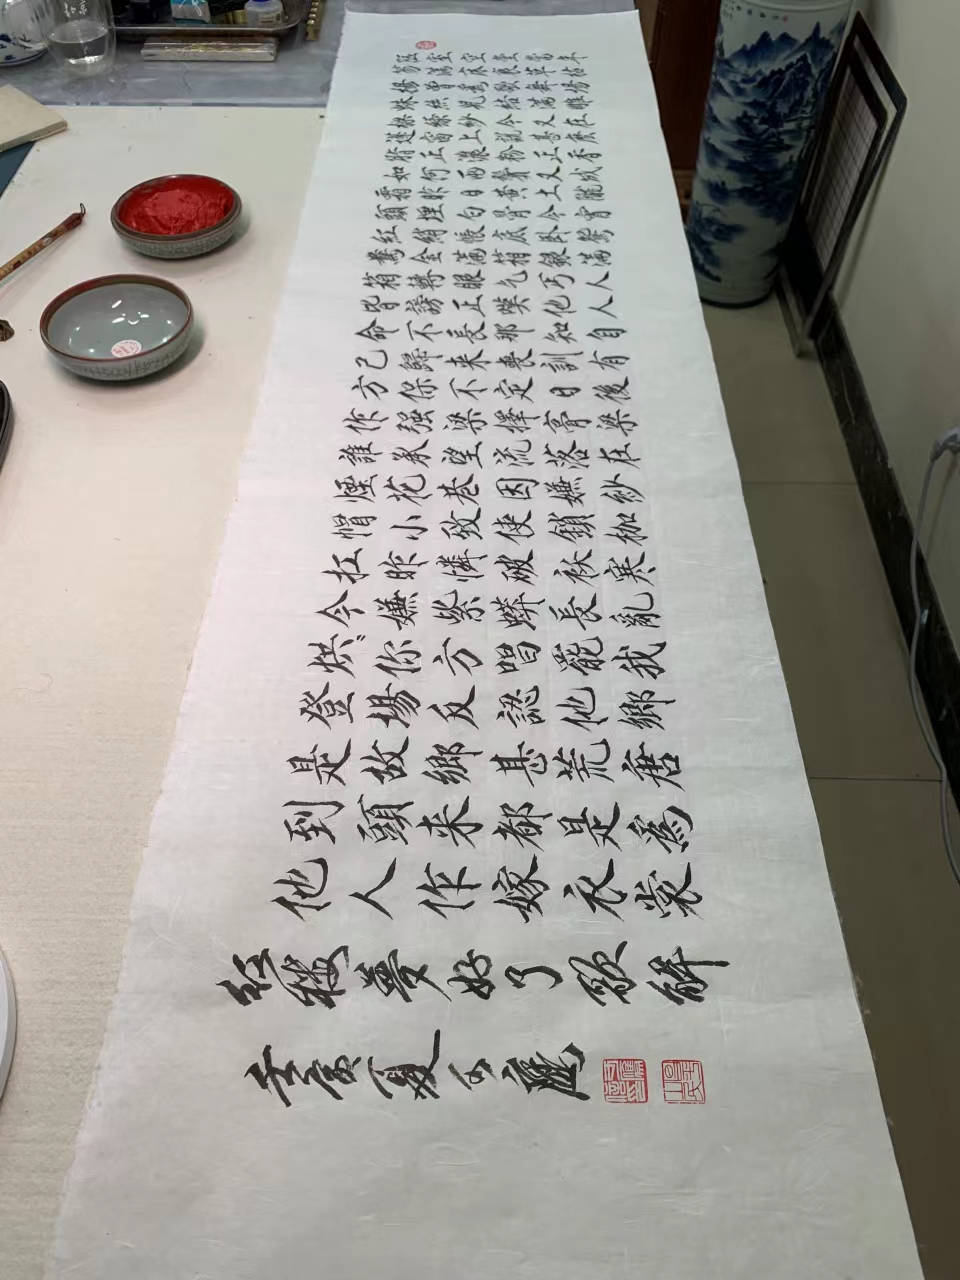 陋室空堂當年
笏滿床衰草枯
楊曾為歌舞場
蛛絲兒結滿雕
梁綠紗今又在
蓬窗上說甚麼
脂正濃粉正香
如何兩鬢又成
霜昨日黃土隴
頭埋白骨今宵
紅綃帳底臥鴛
鴦金滿箱銀滿
箱轉眼乞丐人
皆謗正嘆他人
命不長那知自
己歸來喪訓有
方保不定日後
作强梁擇膏粱
誰承望流落在
煙花巷因嫌紗
帽小致使鎖枷
扛昨憐破襖寒
今嫌紫蟒長亂
烘〻你方唱罷我
登場反認他鄉
是故鄉甚荒唐
到頭來都是為
他人作嫁衣裳
紅樓夢好了歌解
壬寅夏